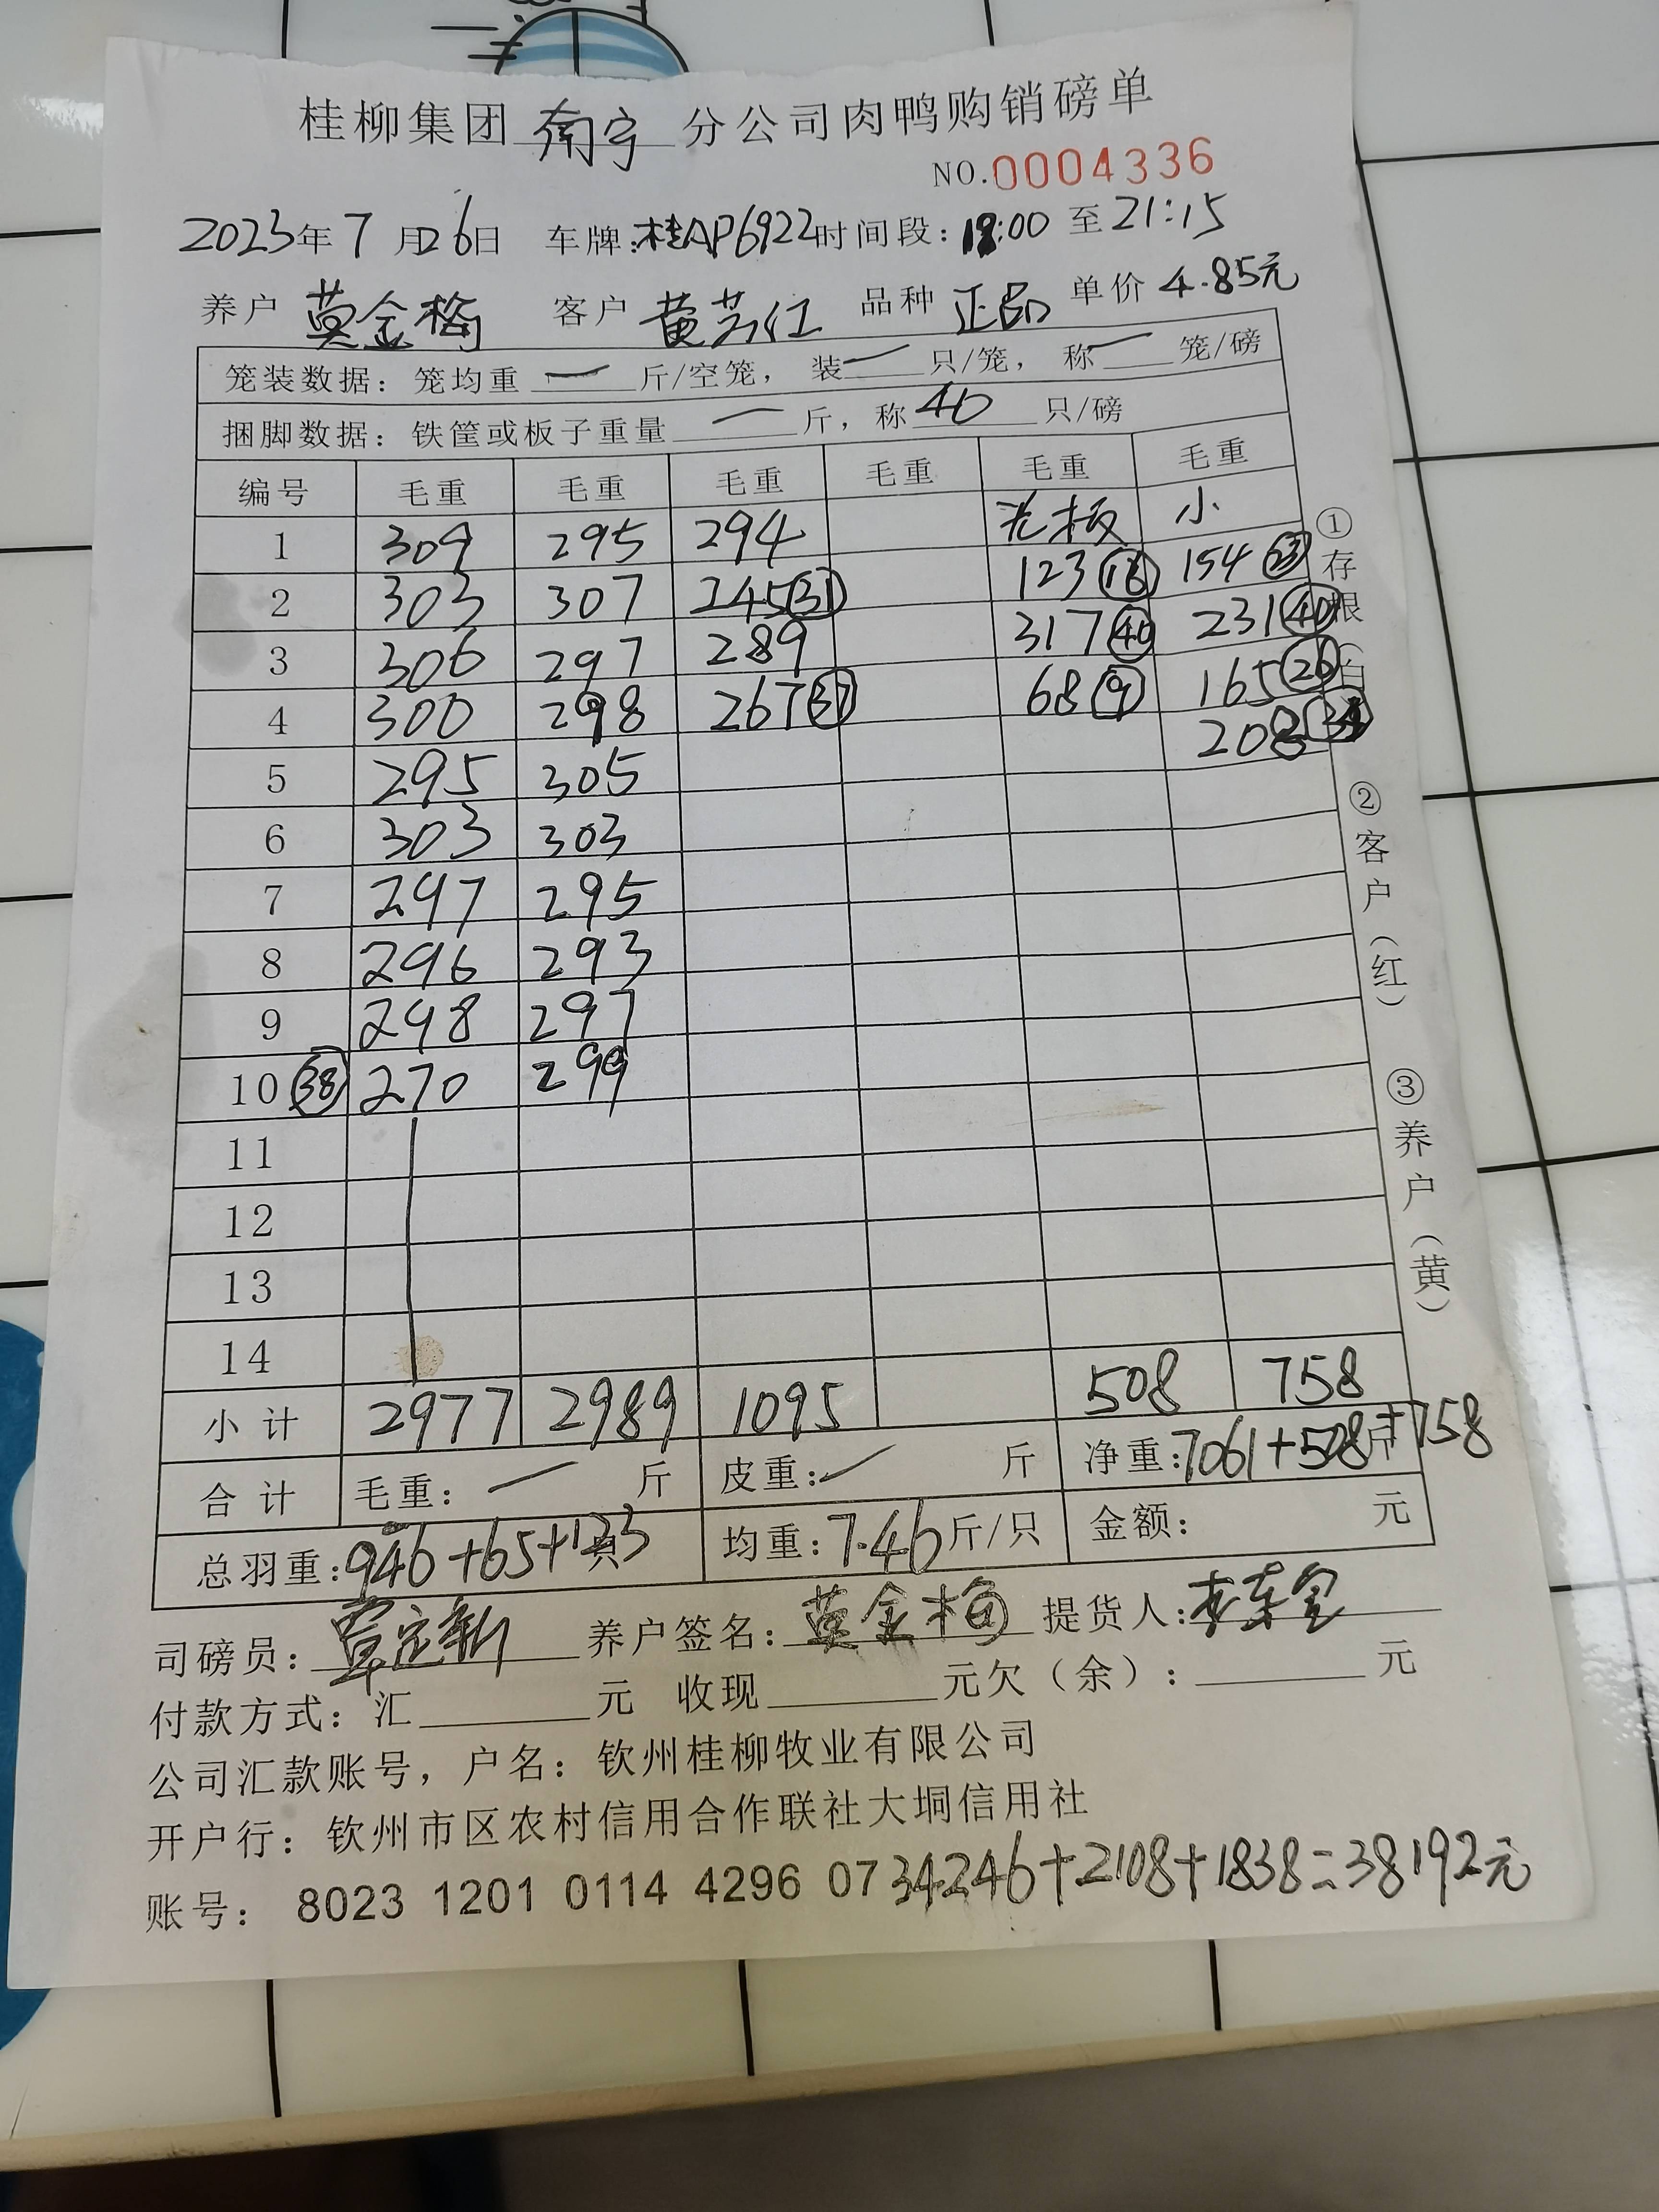 桂柳集团南宁分公司肉鸭购销磅单
NO.0004336
2023年7月26日 车牌:桂AP6922 时间段:18:00至21:15
养户 莫金梅 客户 黄芸红 品种 正品 单价 4.85元
笼装数据:笼均重 一 斤/空笼,装 一 只/笼,称 一 笼/磅
捆脚数据:铁筐或板子重量 一 斤,称 40 只/磅
编号 毛重 毛重 毛重 毛重 毛重 毛重
1 309 295 294 光板 小
2 303 307 245(31) 123(16) 154(23)
3 306 297 289 317(40) 231(40)
4 300 298 267(37) 68(9) 165(26)
208
5 295 305
6 303 303
7 297 295
8 296 293
9 298 297
10 (38) 270 299
11
12
13
14
小计 2977 2989 1095 508 758
合计 毛重:一 斤 皮重:一 斤 净重:7061+508+758斤
总羽重:946+65+123 均重:7.46斤/只 金额: 元
司磅员:覃定新 养户签名:莫金梅 提货人:
付款方式:汇 元 收现 元欠(余): 元
公司汇款账号,户名:钦州桂柳牧业有限公司
开户行:钦州市区农村信用合作联社大垌信用社
账号: 8023 1201 0114 4296 07
34246+2108+1838=38192元
①存根(白)
②客户(红)
③养户(黄)